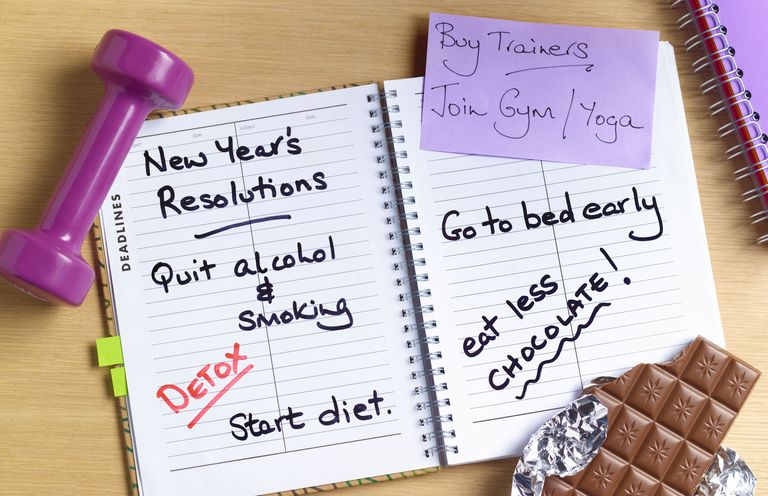 DEADLINES
subject
date
New Year's
Resolutions
Quit alcohol
&
smoking
DETOX
Start diet.
Buy Trainers
Join Gym/Yoga
Go to bed early
eat less
CHOCOLATE!